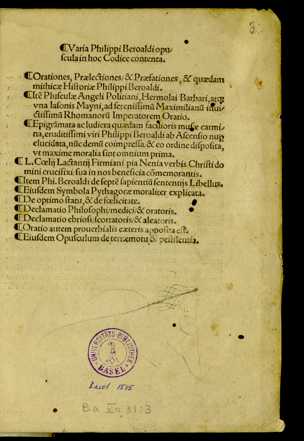 ¶Varia Philippi Beroaldi opu-
scula in hoc Codice contenta.
¶Orationes, Prælectiones, & Præfationes, & quædam
mithicæ Historiæ Philippi Beroaldi.
¶Itē Plusculæ Angeli Politiani, Hermolai Barbari, atqȝ
vna Iasonis Mayni, ad serenissimū Maximilianū
Rhomanorū Imperatorem Oratio.
¶Epigrāmata ac ludicra quædam facilioris musæ carmi-
na, eruditissimi viri Philippi Beroaldi ab Ascensio nup
elucidata, nūc demū coimpressa, & eo ordine disposita,
vt maxime moralia sint omnium prima.
¶L. Cœlij Lactantij Firmiani pia Nenia verbis Christi do
mini crucifixi sua in nos beneficia cōmemorantis.
¶Item Phi. Beroaldi de septē sapientū sententijs Libellus.
¶Eiusdem Symbola Pythagoræ moraliter explicata.
¶De optimo statu, & de fœlicitate.
¶Declamatio Philosophi, medici, & oratoris.
¶Declamatio ebriosi, scortatoris, & aleatoris.
¶Oratio autem prouerbialis cæteris apposita est.
¶Eiusdem Opusculum de terræmotu & pestilentia.
UNIVERSITÄTS-BIBLIOTHEK
BASEL
Basel 1515